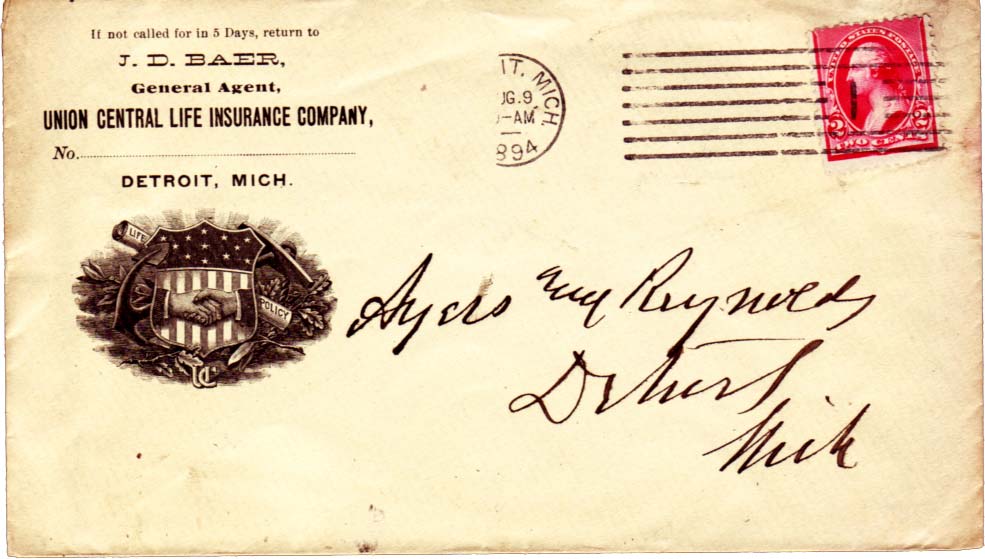 If not called for in 5 Days, return to
J. D. BAER,
General Agent,
UNION CENTRAL LIFE INSURANCE COMPANY,
No.
DETROIT, MICH.
LIFE
POLICY
UC
IT, MICH.
UG.9
-AM
894
UNITED STATES POSTAGE
2 2
TWO CENTS
Ayers Reynolds
Detroit
Mich